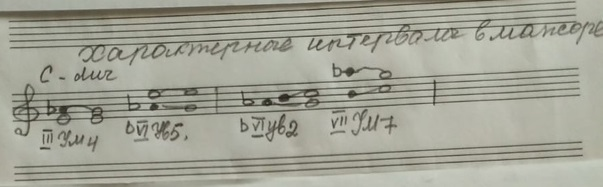 характерные интервала в мажоре
C - dur
III Ум4 bVI Ув5. bVI ув2 VII Ум7